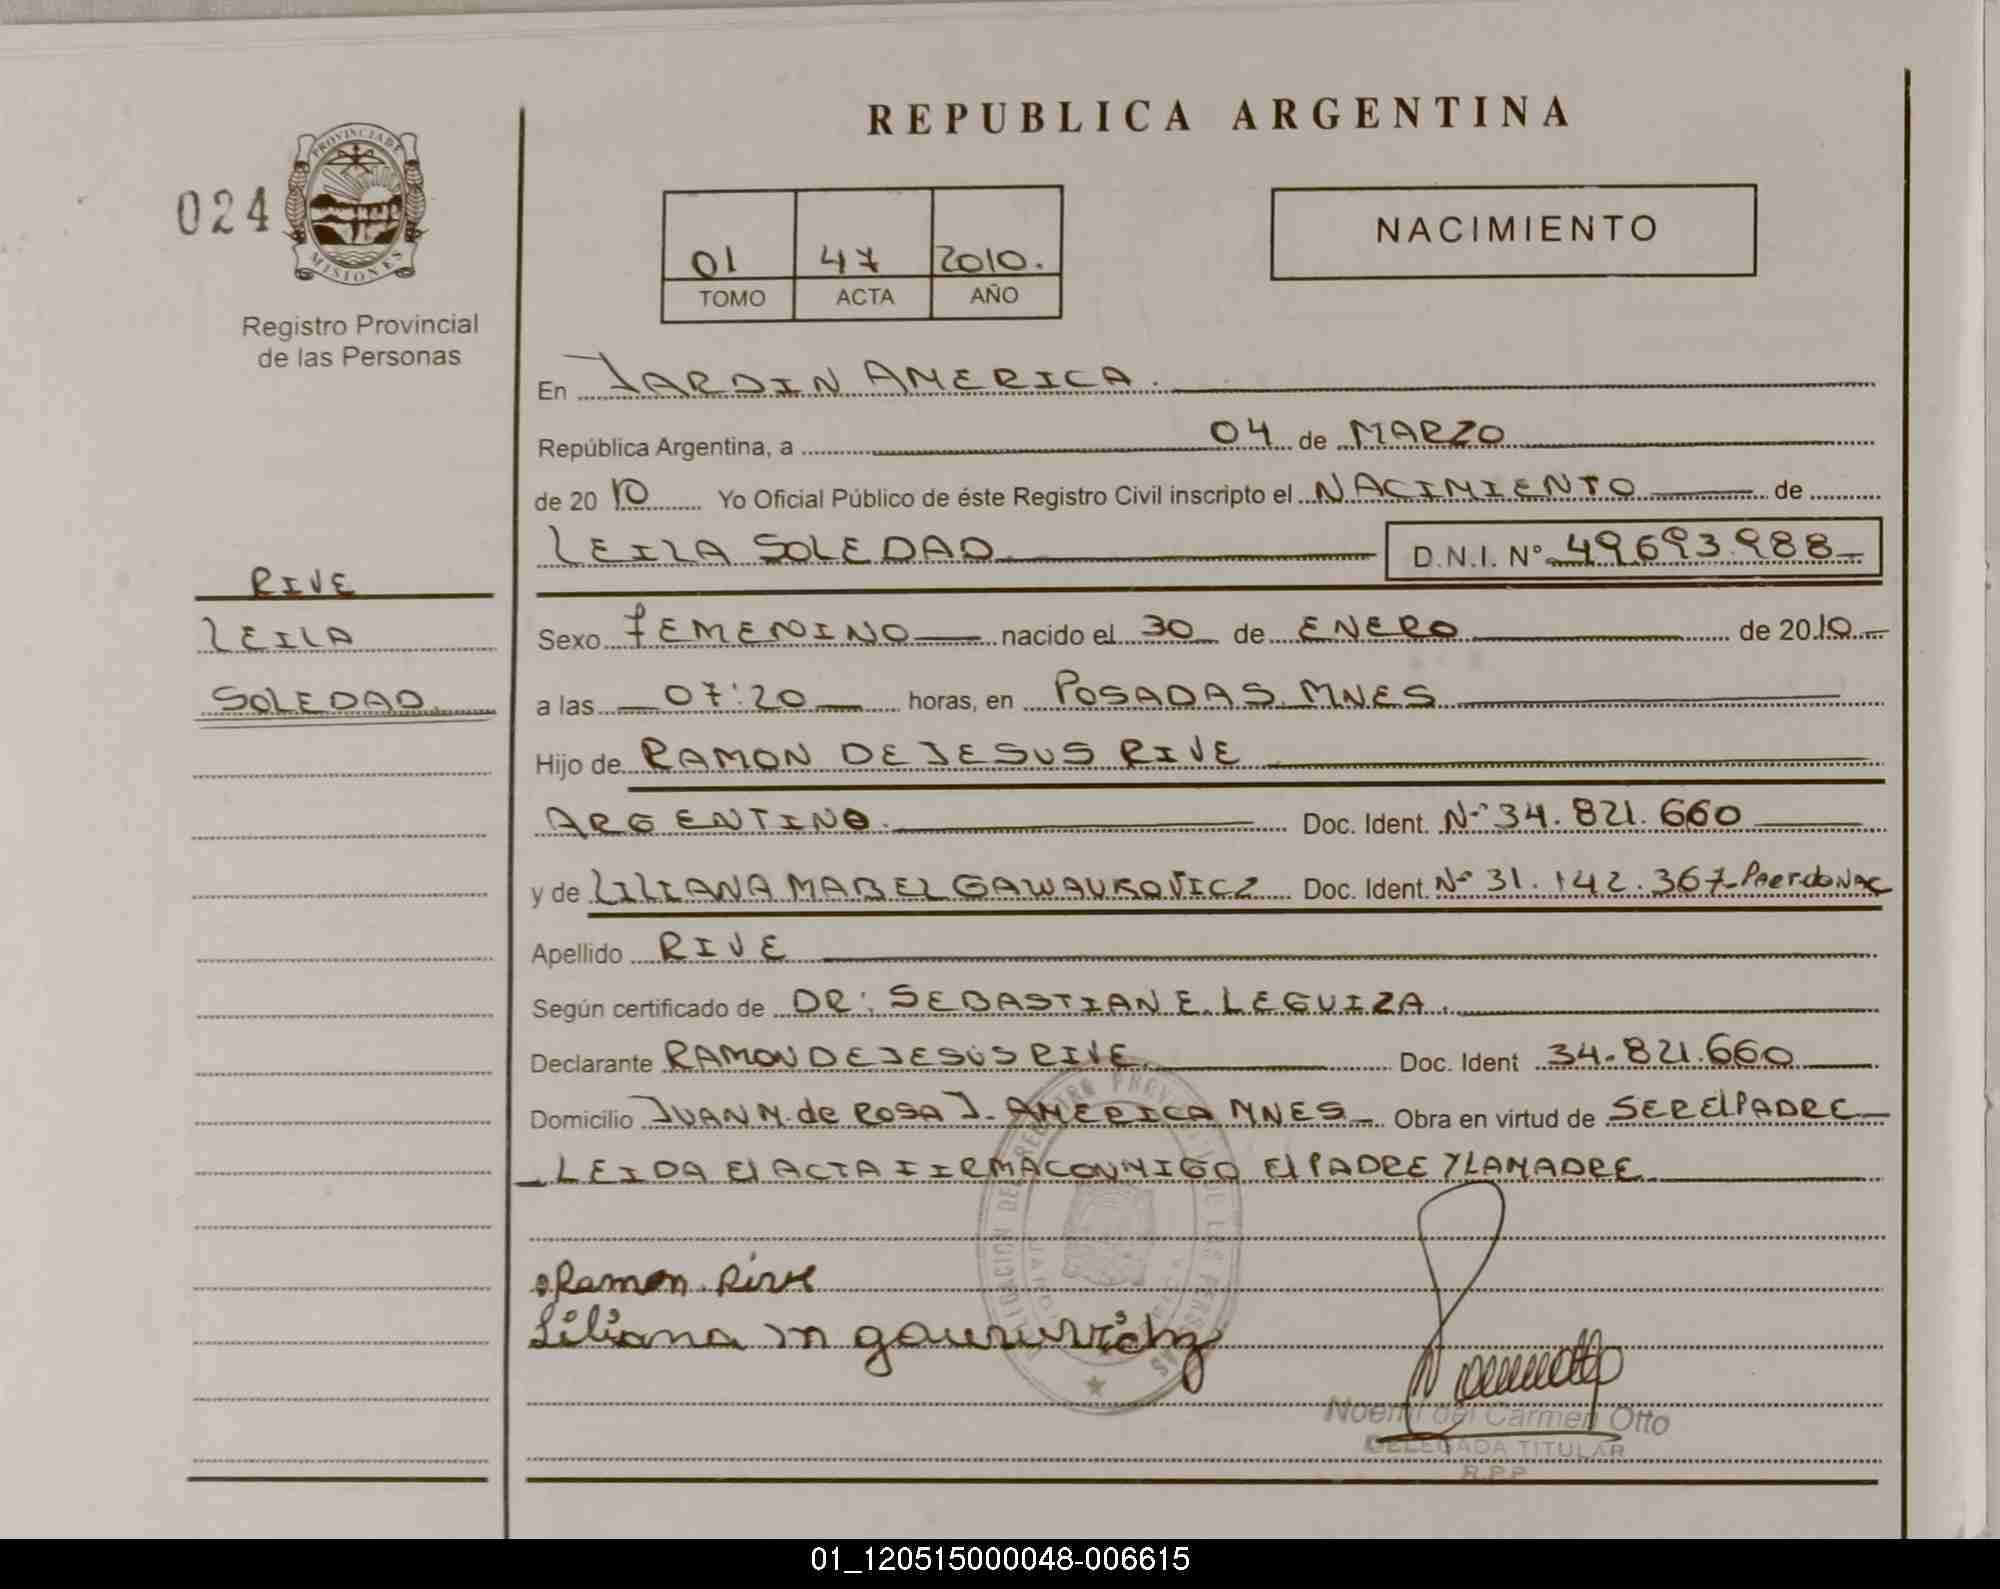 REPUBLICA ARGENTINA
024
PROVINCIA DE
MISIONES
Registro Provincial
de las Personas
01 47 2010.
TOMO ACTA AÑO
NACIMIENTO
RIVE
LEILA
SOLEDAD
En JARDIN AMERICA.
República Argentina, a 04 de MARZO
de 2010 Yo Oficial Público de éste Registro Civil inscripto el NACIMIENTO de
LEILA SOLEDAD D.N.I. Nº 49.693.988
Sexo FEMENINO nacido el 30 de ENERO de 2010
a las 07:20 horas, en POSADAS. MNES
Hijo de RAMON DE JESUS RIVE
ARGENTINO. Doc. Ident. Nº 34.821.660
y de LILIANA MABEL GAWAUROVICZ Doc. Ident. Nº 31.142.367
Apellido RIVE
Según certificado de DR: SEBASTIAN E. LEGUIZA.
Declarante RAMON DE JESUS RIVE Doc. Ident 34.821.660
Domicilio JUAN M. de ROSA J. AMERICA MNES Obra en virtud de SER El PADRE
LEIDA El ACTA FIRMA CONMIGO El PADRE Y LA MADRE
Ramon Rive
Liliana m
Noemi del Carmen Otto
DELEGADA TITULAR
R.P.P
01_120515000048-006615